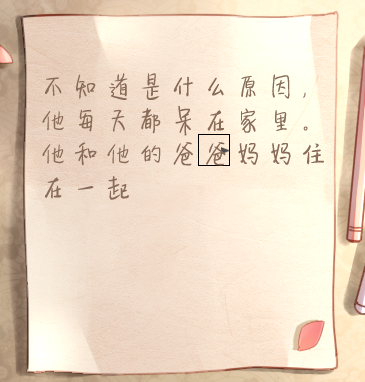 不知道是什么原因，
他每天都呆在家里。
他和他的爸爸妈妈住
在一起